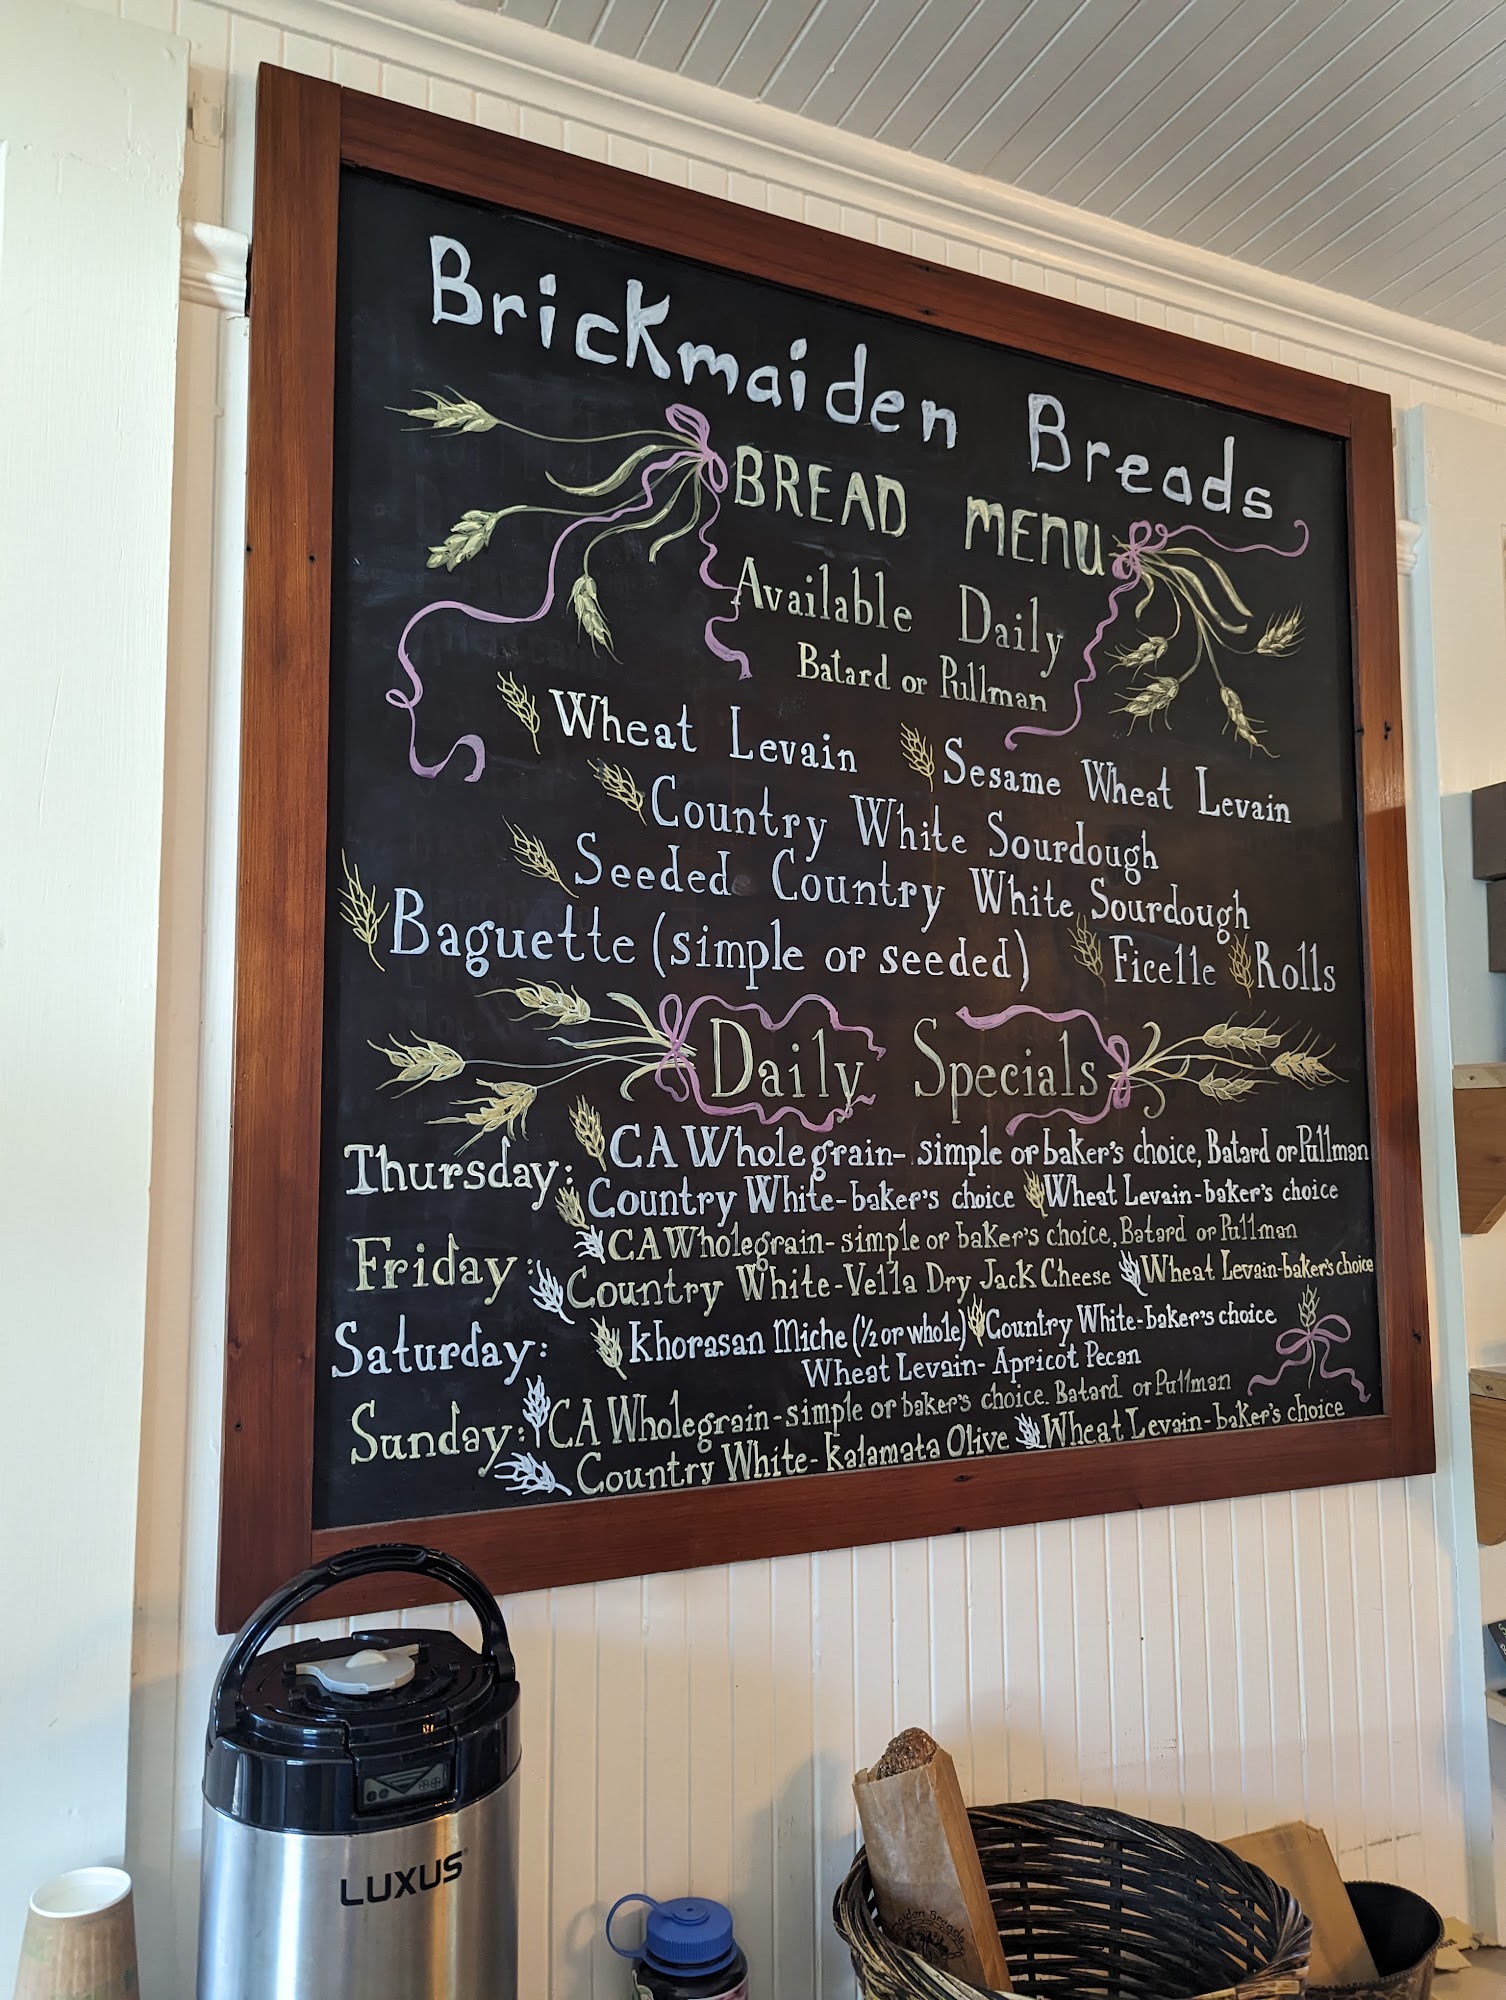 Brickmaiden Breads
BREAD MENU
Available Daily
Batard or Pullman
Wheat Levain Sesame Wheat Levain
Country White Sourdough
Seeded Country White Sourdough
Baguette (simple or seeded) Ficelle Rolls
Daily Specials
Thursday: CA Wholegrain- simple or baker's choice, Batard or Pullman
Country White-baker's choice Wheat Levain-baker's choice
Friday: CA Wholegrain- simple or baker's choice, Batard or Pullman
Country White-Vella Dry Jack Cheese Wheat Levain-baker's choice
Saturday: Khorasan Miche (½ or whole) Country White-baker's choice
Wheat Levain- Apricot Pecan
Sunday: CA Wholegrain-simple or baker's choice. Batard or Pullman
Country White-Kalamata Olive Wheat Levain-baker's choice
LUXUS